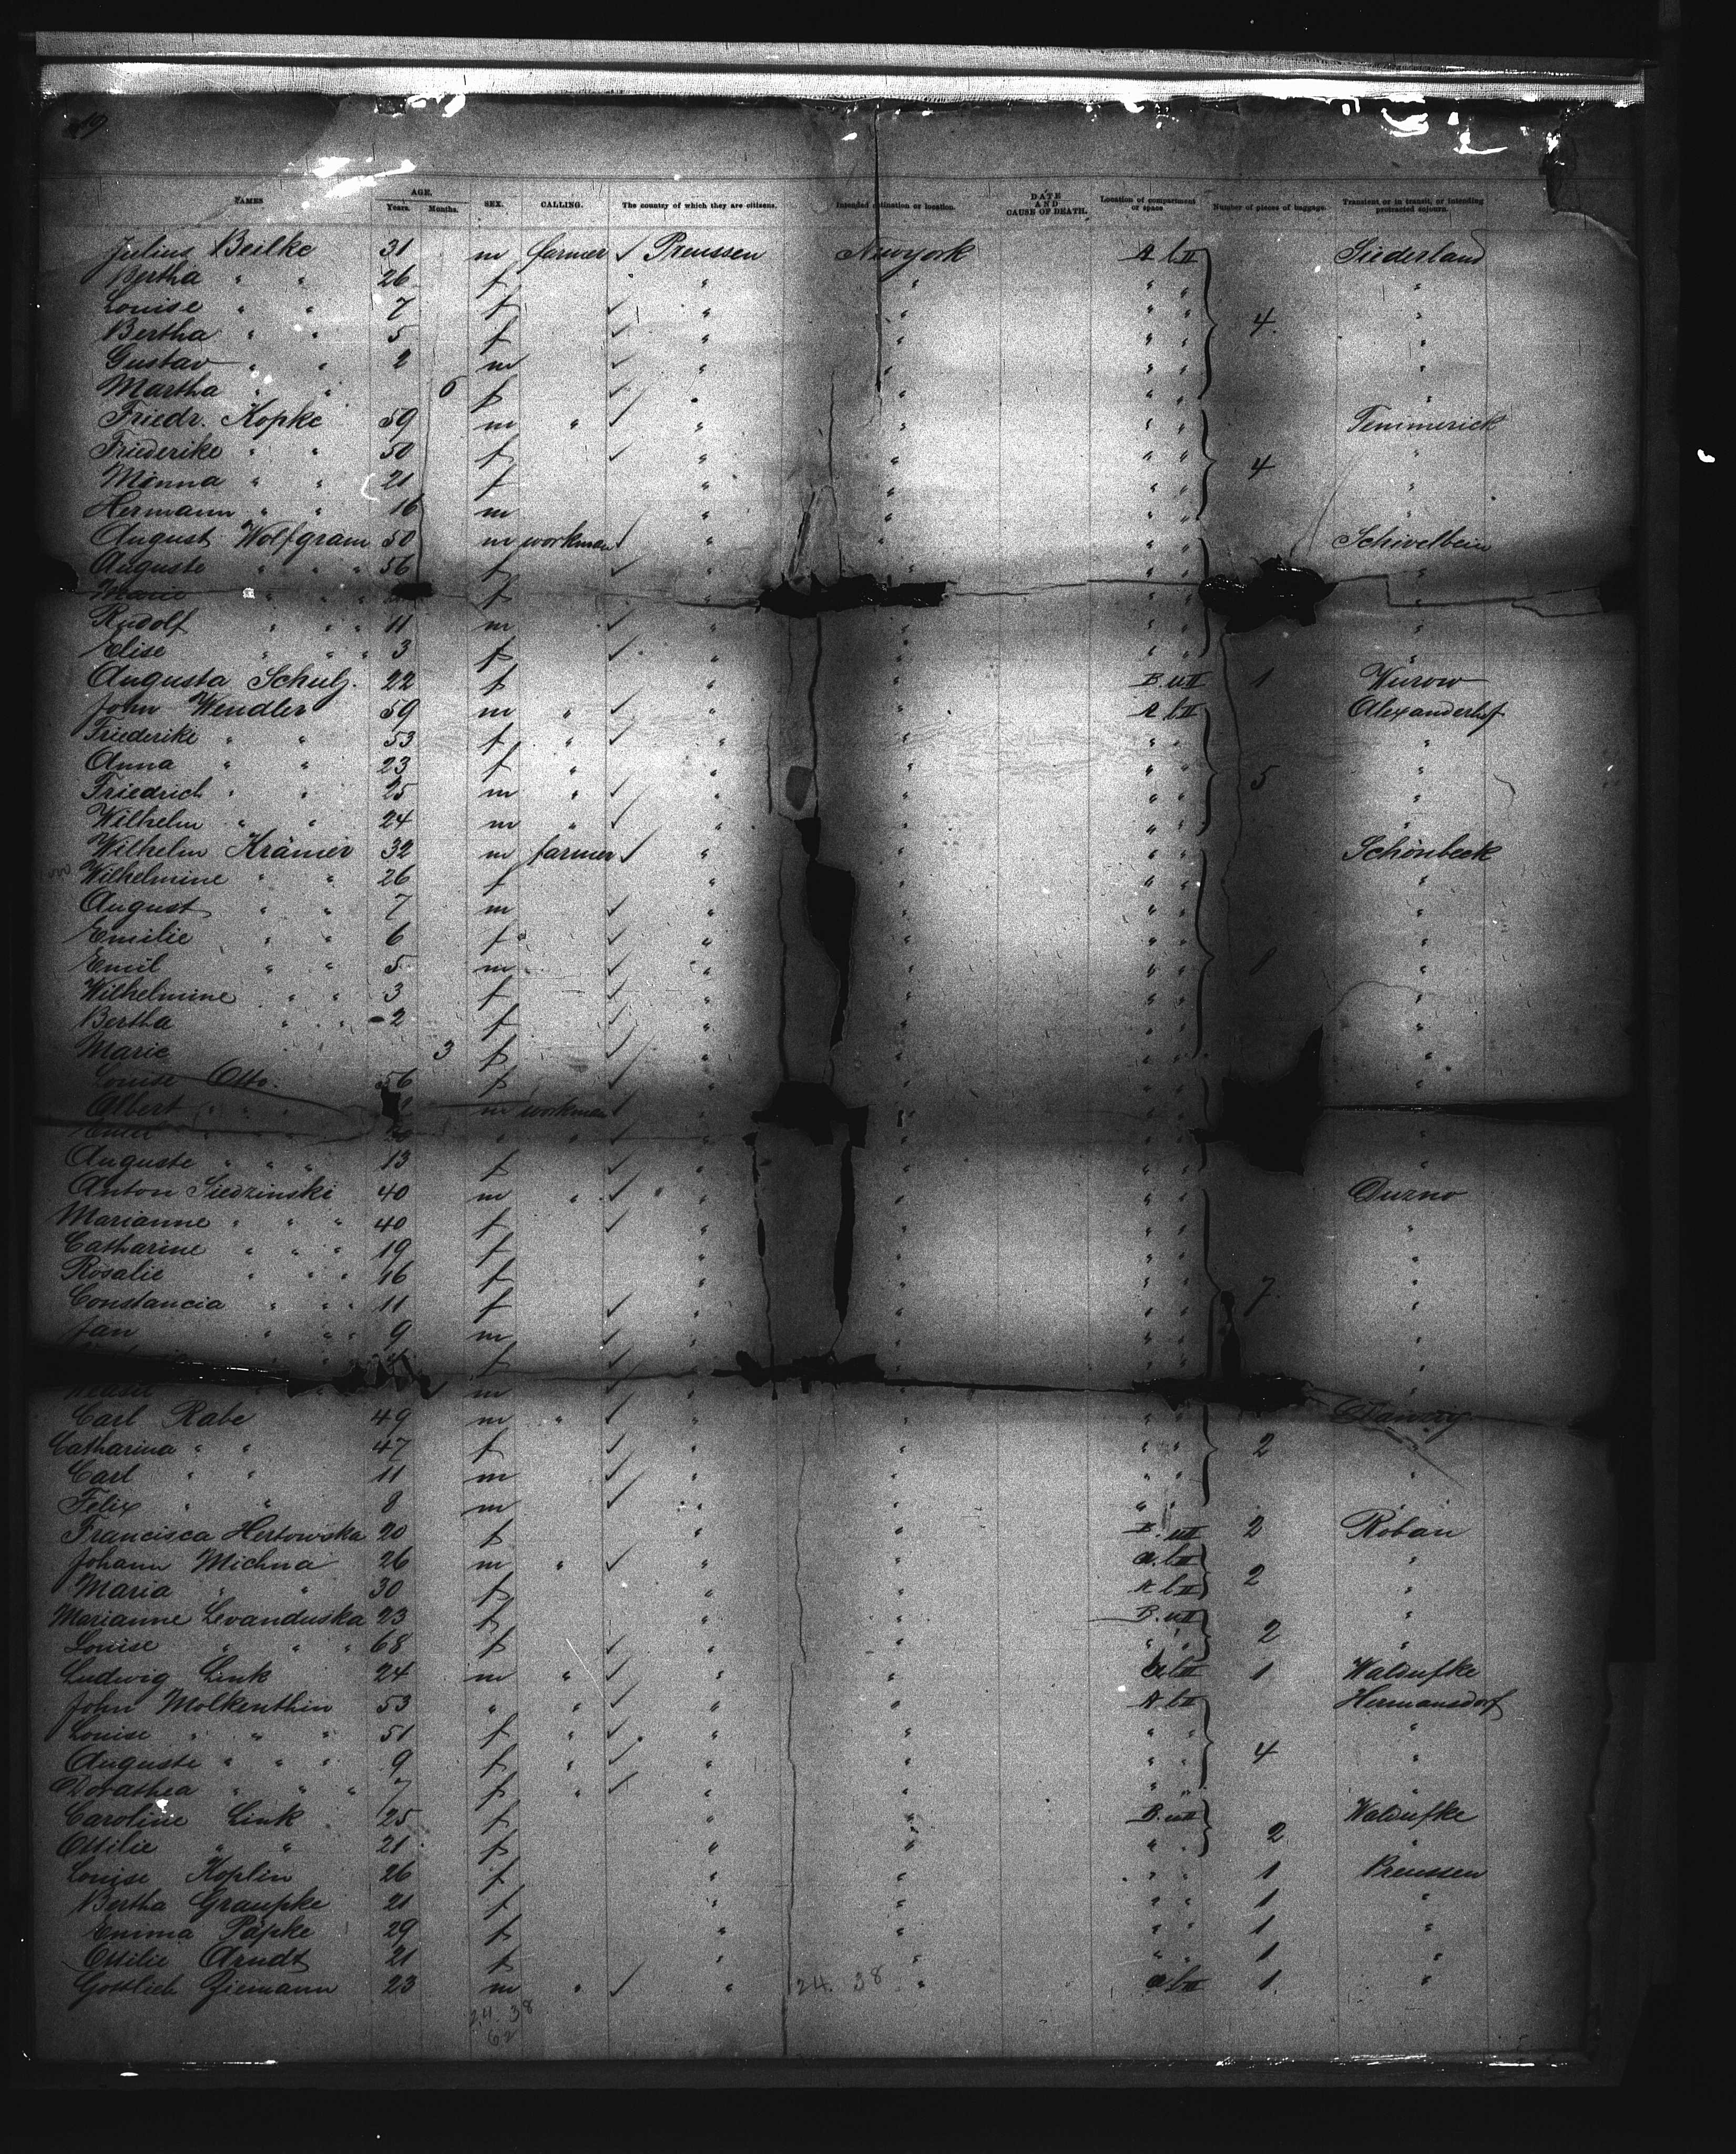 19
NAMES AGE. Years. Months. SEX. CALLING. The country of which they are citizens. Intended destination or location. DATE AND CAUSE OF DEATH. Location of compartment or space Number of pieces of baggage. Transient, or in transit, or intending protracted sojourn.
Julius Beilke 31 m farmer ✓ Preussen Newyork A b II Siederland
Bertha " " 26 f " " " " "
Louise " " 7 f ✓ " " " " "
Bertha " " 5 f ✓ " " " " 4. "
Gustav " " 2 m ✓ " " " " "
Martha " " 6 f ✓ " " " " "
Friedr. Kopke 59 m " ✓ " " " " Temmerick
Friederike " " 50 f ✓ " " " " "
Minna " " 21 f " " " " 4 "
Hermann " " 16 m " " " " "
August Wolfgram 50 m workman ✓ " " " " Schivelbein
Auguste " " " 56 f ✓ " " " "
Marie " " " f " " " "
Rudolf " " " 11 m ✓ " " " " "
Elise " " " 3 f ✓ " " " " "
Augusta Schulz. 22 f " " B. u II 1 Wurow
John Wendler 59 m " ✓ " " A b II Alexanderhof
Friederike " " 53 f " ✓ " " " " "
Anna " " 23 f " " " " " "
Friedrich " " 25 m " ✓ " " " " 5 "
Wilhelm " " 24 m " ✓ " " " " "
Wilhelm Krämer 32 m farmer ✓ " " " " Schönbeck
Wilhelmine " " 26 f " " " " "
August " " 7 m ✓ " " " " "
Emilie " " 6 f ✓ " " " " "
Emil " " 5 m ✓ " " " " "
Wilhelmine " " 3 f ✓ " " " " "
Bertha " " 2 f ✓ " " " " "
Marie 3 f ✓ " " " " "
Louise Otto. 56 f ✓ " " " " "
Albert " " m workman ✓ " " "
Emil " " " " ✓ " " " " "
Auguste " " " 13 f ✓ " " " " "
Anton Siedzinski 40 m " ✓ " " " " Duzno
Marianne " " " 40 f ✓ " " " " "
Catharine " " " 19 f " " " " "
Rosalie " " " 16 f " " " " 7. "
Constancia " " " 11 f ✓ " " " " "
Jan " " " 9 m ✓ " " " " "
f ✓ " " " "
m ✓ " " "
Carl Rabe 49 m " ✓ " " " " Danzig
Catharina " " 47 f ✓ " " " " 2
Carl " " 11 m ✓ " " " " "
Felix " " 8 m ✓ " " " " "
Francisca Hertowska 20 f " " B. u II 2 Roban
Johann Michna 26 m " ✓ " " a. b II "
Maria " " 30 f " " A b II 2 "
Marianne Levanduska 23 f " " B. u II "
Louise " " " 68 f ✓ " " " " 2 "
Ludwig Link 24 m " ✓ " " A b II 1 Waldufke
John Molkenthin 53 " " ✓ " " A b II Hermansdorf
Louise " " " 51 f " ✓ " " " " "
Auguste " " " 9 f " ✓ " " " " 4 "
Dorathea " " " 7 f " ✓ " " " " "
Caroline Link 25 f " " B. u II Waldufke
Ottilie " " 21 f " " " 2 "
Louise Koplin 26 f " " " " 1 Preussen
Bertha Graupke 21 f " " " " 1 "
Emma Päpke 29 f " " " " 1 "
Ottilie Arndt 21 f " " " " 1 "
Gottlieb Ziemann 23 m " ✓ " 24. 38 " a b II 1. "
24. 38
62